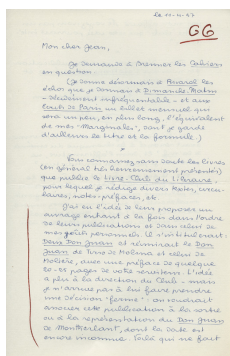 Le 10-4-57
GG
Mon cher Jean,
Je demande à Mermier les Cahiers
en question.
(Je donne désormais à Arsenal les
échos que je donnais à Dimanche Matin
- décidément infréquentable - et aux
un billet mensuel qui
sera un peu, en plus long, l'équivalent
de mes "Marginales", dont je garde
d'ailleurs le titre et la formule.)
*
Vous connaissez sans doute les livres
(en général très convenablement présentés)
que publie le Livre-Club du Libraire,
pour lequel je rédige divers textes, circu-
laires, notes, préfaces, etc.
J'ai eu l'idée de leur proposer un
ouvrage entrant à la fois dans l'ordre
de leurs publications et dans celui de
mes goûts personnels. Il s'intitulerait:
Deux Don Juan et réunirait le Don
Juan de Tirso de Molina et celui de
Molière, avec une préface de quelque
20-25 pages de votre serviteur. L'idée
a plu à la direction du Club - mais
je n'arrive pas à lui faire prendre
une décision "ferme": on voudrait
associer cette publication à la sortie
ou à la représentation du Don Juan
de Montherlant, dont la date est
encore inconnue. Voilà qui me fait